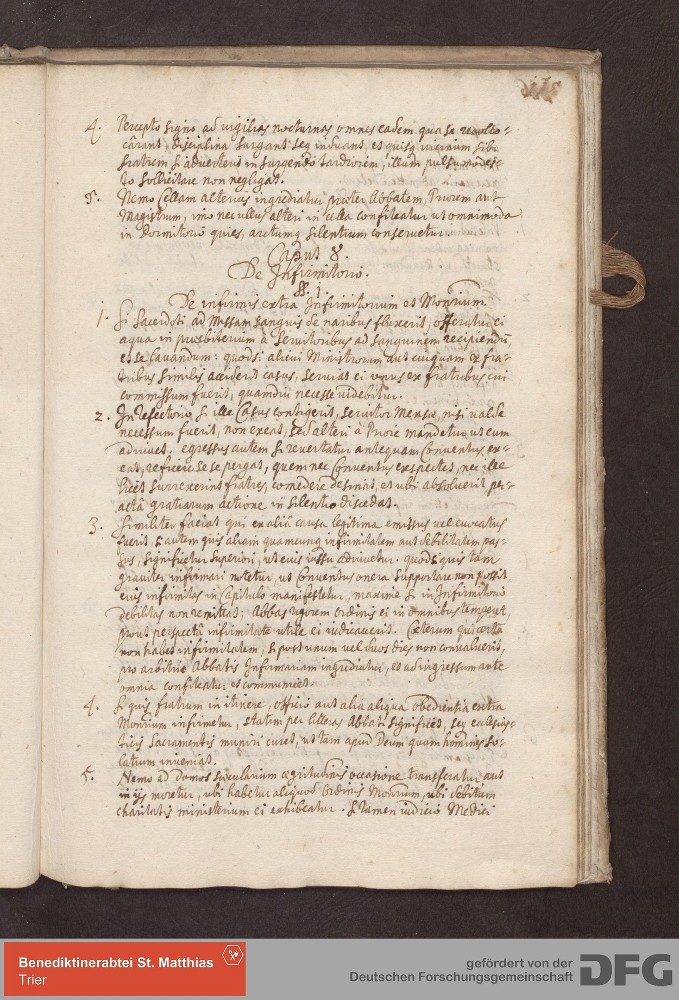 4. Percepto signo ad vigilias nocturnas omnes eadem qua se recollo-
cârant, disciplina surgant seq induant, et quisq vicinum sibi
fratrem si adverterit in surgendo tardiorem, illum pulsu modes-
to sollicitare non negligat.
5. Nemo Cellam alterius ingrediatur præter Abbatem, Priorem aut
Magistrum, imo nec ullus alteri in cella confiteatur ut omnimoda
in Dormitorio quies, arctumq silentium conservetur.
Caput 8.
De Infirmitorio.
§§. 1.
De infirmis extra Infirmitorium et Monrium.
1. Si Sacerdoti ad Missam sanguis de naribus fluxerit, offeratur ei
aqua in præsbiterium à servitoribus ad sanguinem recipiendū
et se lavandum: quod si alicui Ministrorum aut cuiquam ex fra-
tribus similis acciderit casus, serviat ei unus ex fratribus cui
commissum fuerit, quamdiu necesse videbitur.
2. In refectorio si ille Casus contigerit, servitor Mensæ, nisi valde
necessum fuerit, non exeat, sed alteri à Priore mandetur ut eum
adiuvet. egressus autem si revertatur antequam Conventus ex-
eat, reficere se se pergat, quem nec Conventus exspectet, nec ille
licet surrexerint fratres, comedere desinat, et ubi absolverit per-
actâ gratiarum actione in silentio discedat.
3. Similiter faciat qui ex aliâ causa legitima emissus vel evocatus
fuerit, si autem quis aliam quamcunq infirmitatem aut debilitatem pas-
sus, significetur superiori, ut eius iussu adiuvetur. quod si quis tam
graviter infirmari notetur, ut Conventus onera supportare non possit
eius infirmitas in Capitulo manifestetur, maxime si in Infirmitorio
debilitas non remittat; Abbas rigorem Ordinis ei in omnibus temperet
prout perspectâ infirmitate utile ei iudicaverit. Cæterum qui certā
non habet infirmitatem, si post unum vel duos dies non convaluerit,
pro arbitrio Abbatis Infirmariam ingrediatur, et ad ingressum ante
omnia confiteatur et communicet.
4. Si quis fratrum in itinere, officio aut aliâ aliqua obedientia extra
Monrium infirmetur, statim per litteras Abbati significet, seq ecclesias-
ticis Sacramentis muniri curet, ut tam apud Deum quam homines so-
latium inveniat.
5. Nemo ad domos sæcularium ægritudinis occasione transferatur aut
in ijs moretur, ubi habetur aliquod Ordinis Monrium, ubi debitum
charitatis ministerium ei exhibeatur. Si tamen iudicio Medici
Benediktinerabtei St. Matthias
Trier
gefördert von der
Deutschen Forschungsgemeinschaft
DFG